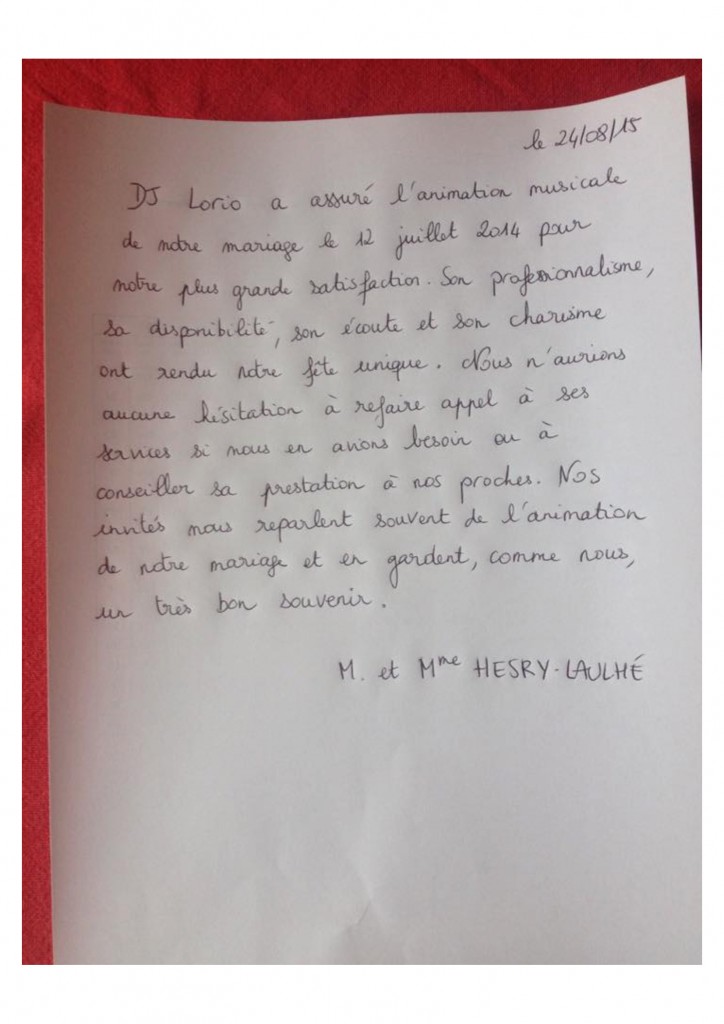 le 24/08/15
DJ Lorio a assuré l'animation musicale
de notre mariage le 12 juillet 2014 pour
notre plus grande satisfaction. Son professionnalisme,
sa disponibilité, son écoute et son charisme
ont rendu notre fête unique. Nous n'aurions
aucune hésitation à refaire appel à ses
services si nous en avions besoin ou à
conseiller sa prestation à nos proches. Nos
invités nous reparlent souvent de l'animation
de notre mariage et en gardent, comme nous,
un très bon souvenir.
M. et Mme HESRY-LAULHÉ